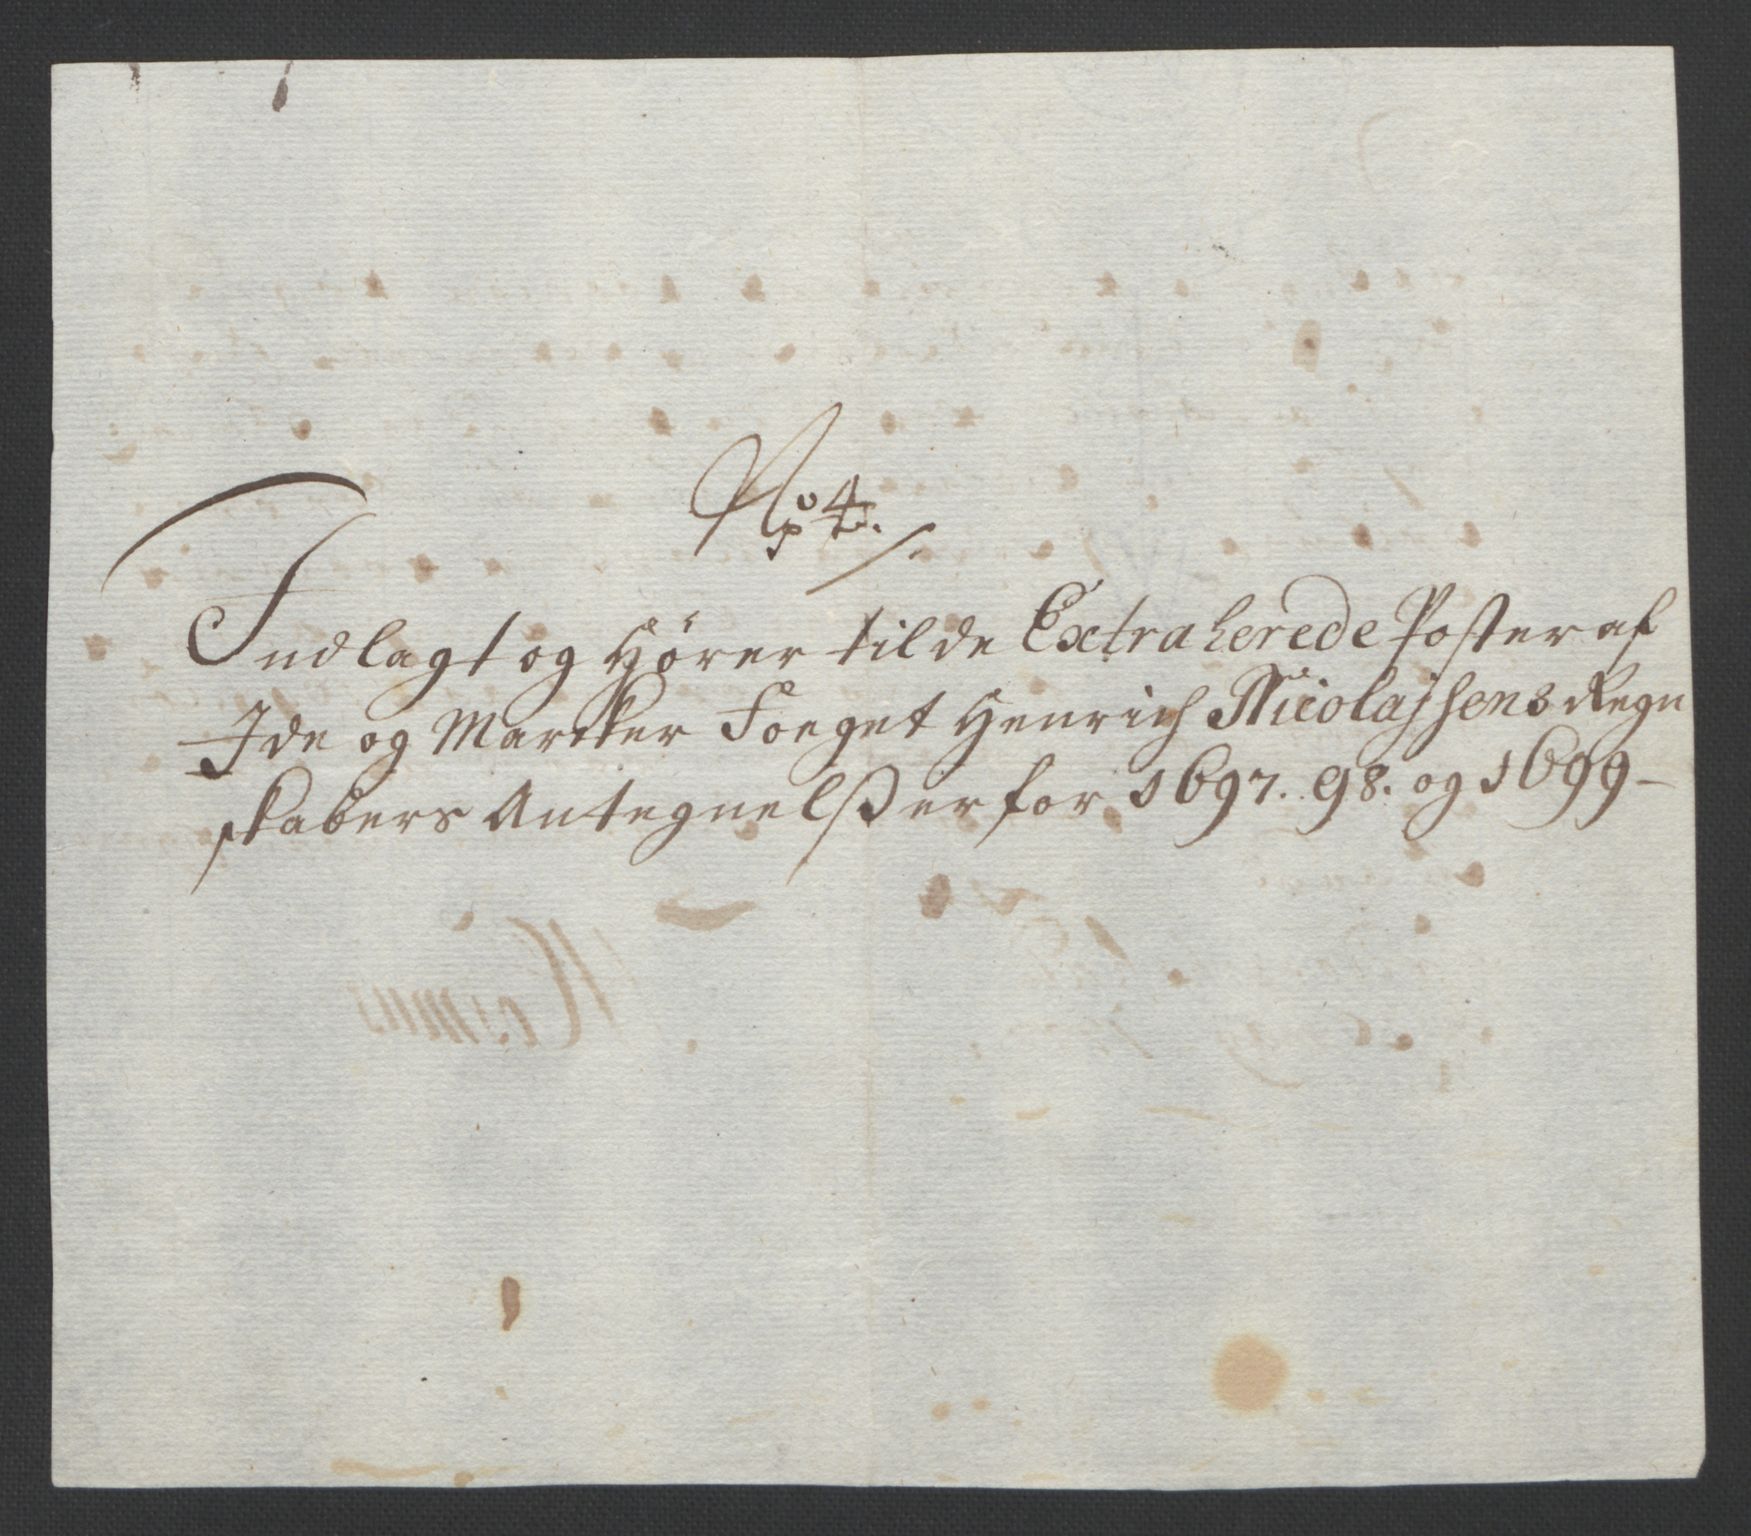 No 4.
Indlagt og Hører til de Extraherede Poster af
Ide og Marcker Foeget Henrich Nicolajsens Regn
skabers Antegnelsser for 1697. 98. og 1699